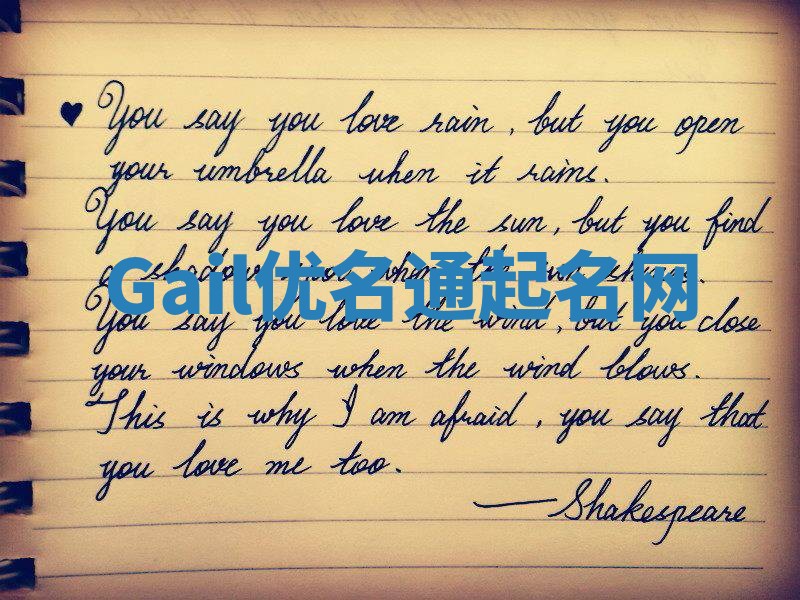 ♥ You say you love rain, but you open
your umbrella when it rains.
You say you love the sun, but you find
a shadow when the sun shines.
Gail优名通起名网
You say you love the wind, but you close
your windows when the wind blows.
This is why I am afraid, you say that
you love me too.
—Shakespeare